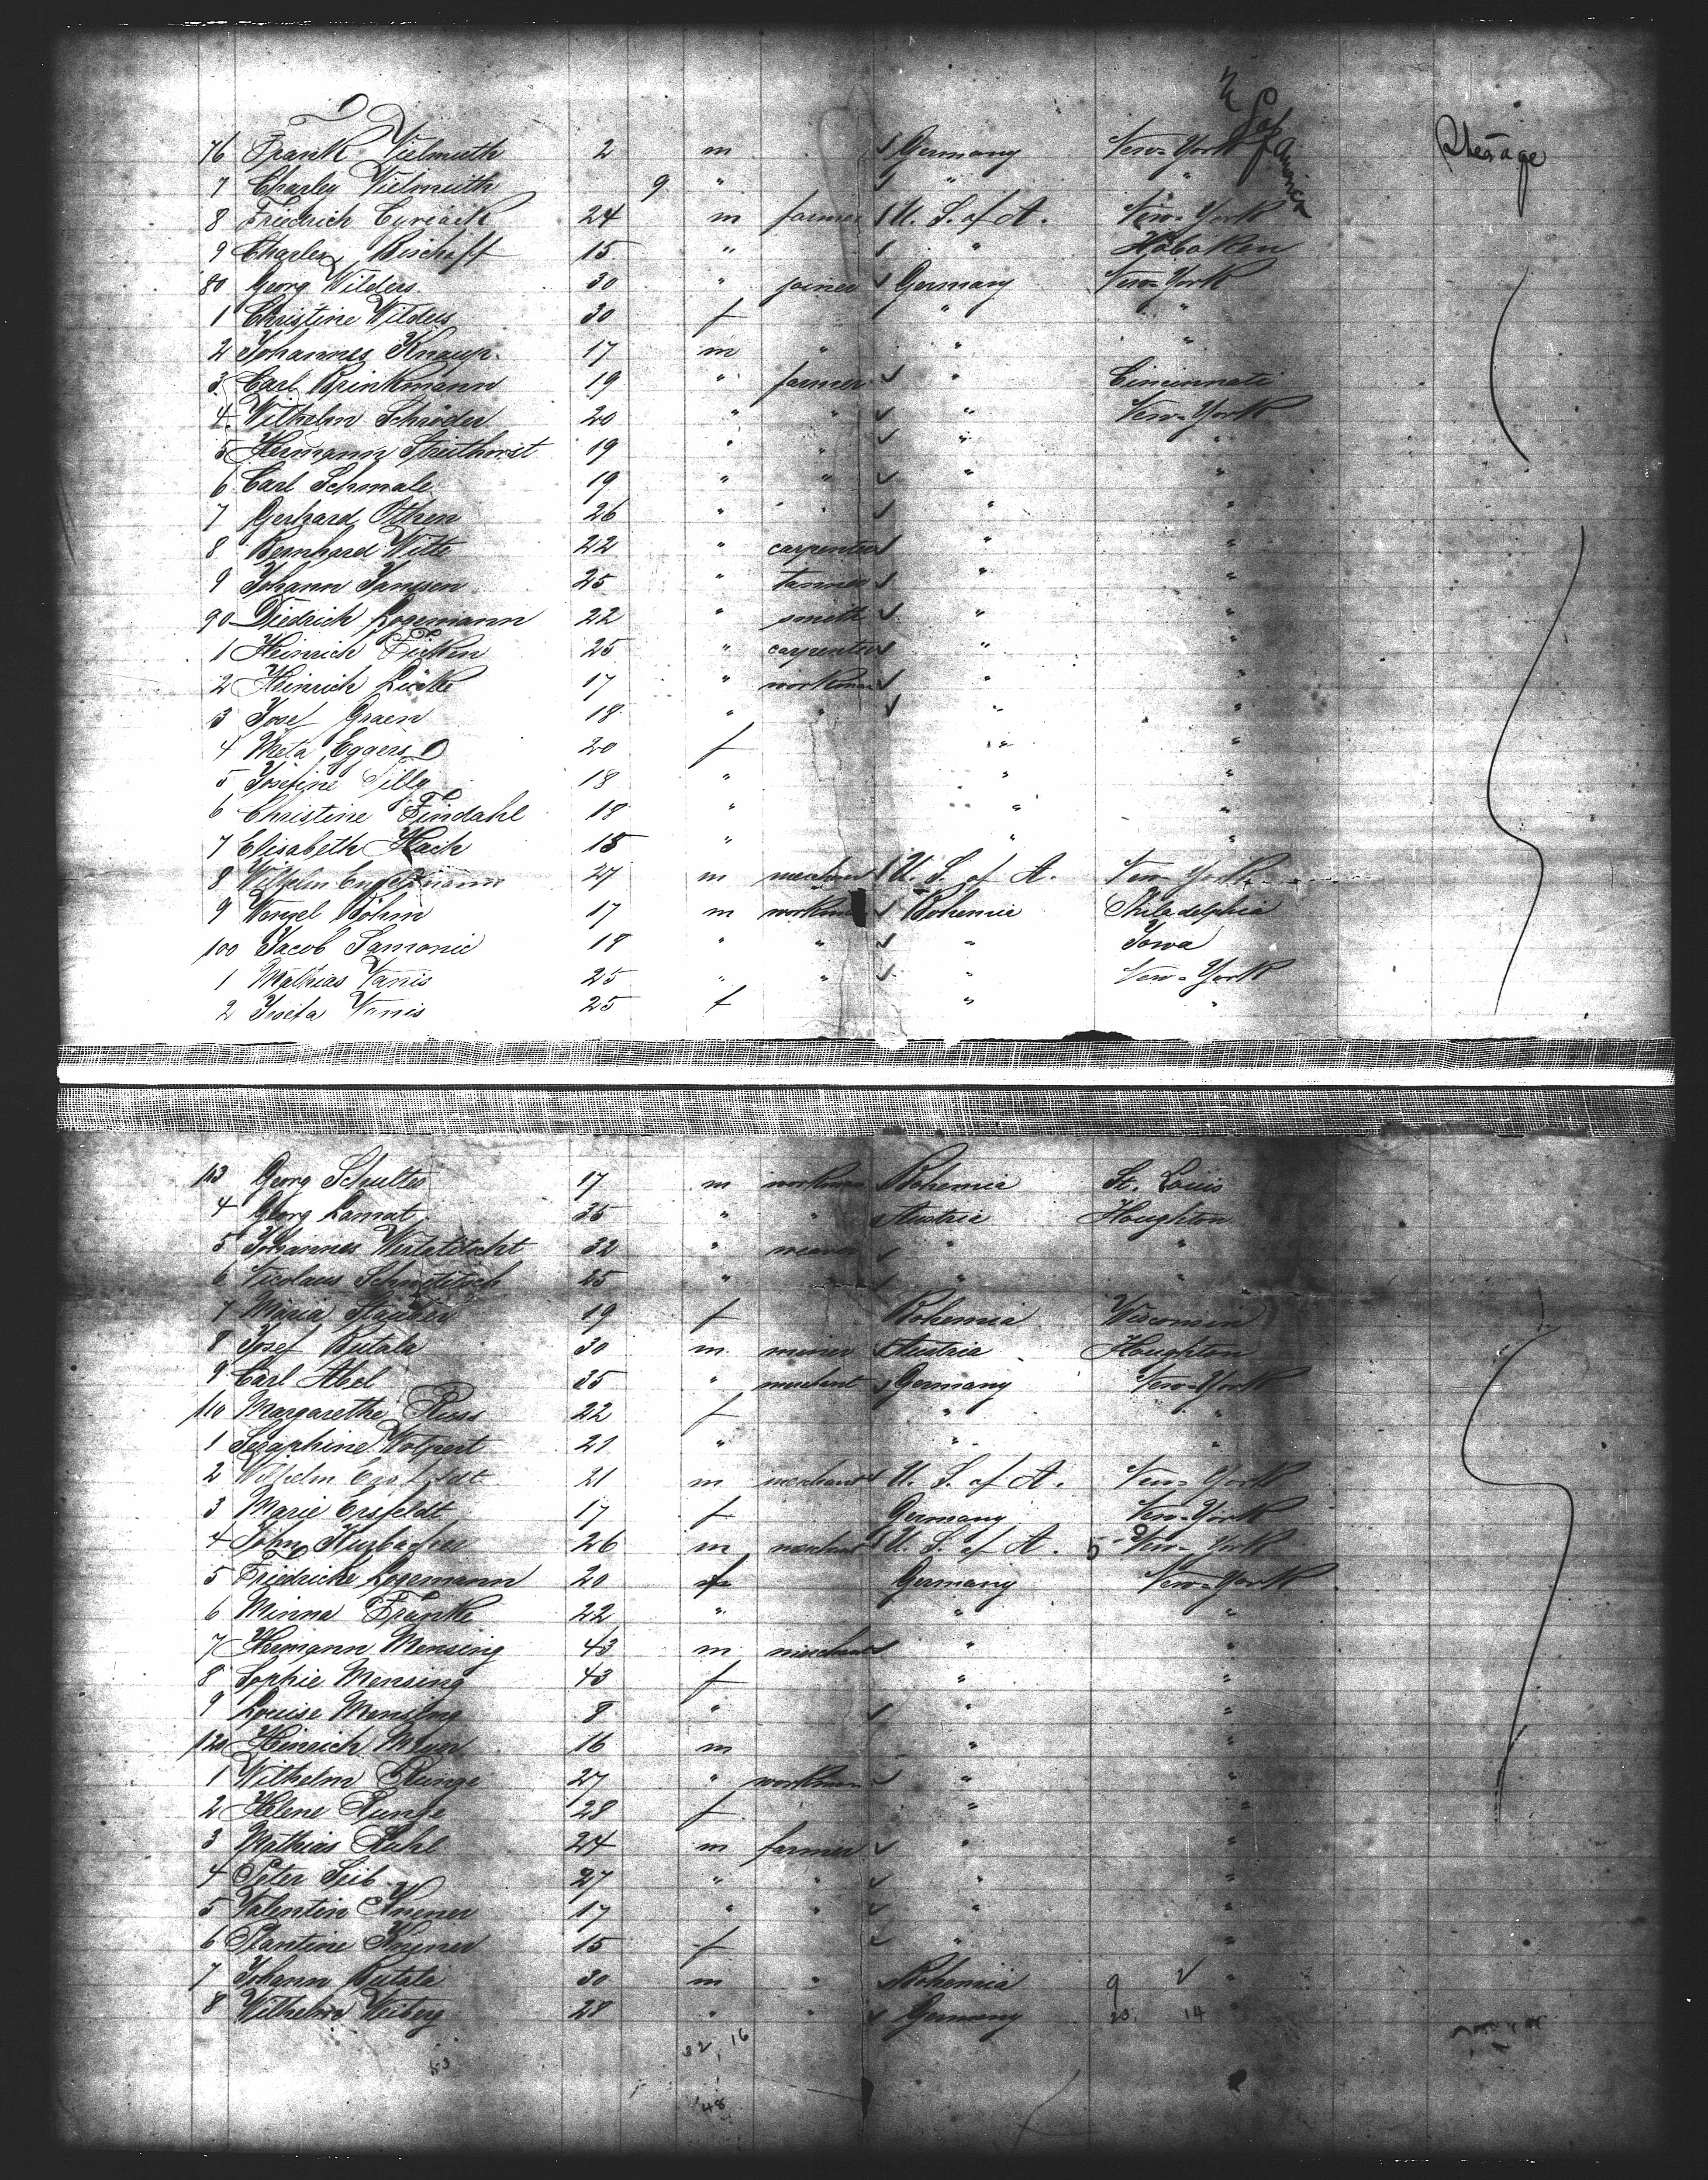 U. S. of America
76 Frank Vielmuth 2 m Germany New-York Steerage
7 Charley Vielmuth 9 " " "
8 Friedrich Cyriack 24 m farmer U. S. of A. New-York
9 Charles Bischoff 15 " " Hoboken
80 Georg Wilders 30 " joiner Germany New-York
1 Christine Wilders 30 f " "
2 Johannes Knaup. 17 m " " "
3 Carl Brinkmann 19 " farmer " Cincinnati
4 Wilhelm Schröder 20 " " " New-York
5 Hermann Streithorst 19 " " " "
6 Carl Schmale 19 " " " "
7 Gerhard Otken 26 " " " "
8 Bernhard Witte 22 " carpenter " "
9 Johann Jansen 25 " tanner " "
90 Diedrich Logemann 22 " smith " "
1 Heinrich Ficken 25 " carpenter " "
2 Heinrich Lücke 17 " workman " "
3 Josef Graen 18 " " " "
4 Meta Eggers 20 f " "
5 Josefine Silly 18 " " "
6 Christine Findahl 18 " " "
7 Elisabeth Hach 18 " " "
8 Wilhelm Engelmann 27 m merchant U. S. of A. New York
9 Wenzel Böhm 17 m workman Bohemia Philadelphia
100 Jacob Samonic 18 " " " Iowa
1 Mathias Vanis 25 " " " New-York
2 Josefa Vanis 25 f " "
103 Georg Schultes 17 m workman Bohemia St. Louis
4 Georg Lamat 35 " " Austria Houghton
5 Johannes Wertatitscht 32 " " "
6 Nicolaus Schmititsch 25 " " "
7 Maria Stauber 19 f Bohemia Wisconsin
8 Josef Butala 30 m miner Austria Houghton
9 Carl Abel 35 " merchant Germany New-York
110 Margarethe Russ 22 f " "
1 Seraphine Wolpert 21 " " "
2 Wilhelm Ersfeldt 21 m merchant U. S. of A. New-York
3 Marie Ersfeldt 17 f Germany New-York
4 John Kurbacher 26 m merchant U. S. of A. 5 New-York
5 Friedricke Logemann 20 f Germany New-York
6 Minna Franke 22 " " "
7 Hermann Mensing 43 m merchant " "
8 Sophie Mensing 43 f " "
9 Louise Mensing 8 " " "
120 Heinrich Meyer 16 m " "
1 Wilhelm Runge 27 " workman " "
2 Helene Runge 28 f " "
3 Mathias Kuhl 24 m farmer " "
4 Peter Seib 27 " " " "
5 Valentin 17 " " " "
6 15 f " "
7 Johann Butala 30 m " Bohemia 9 "
8 Wilhelm Weiberg 28 " " Germany 20 14 "
53 32 16
48